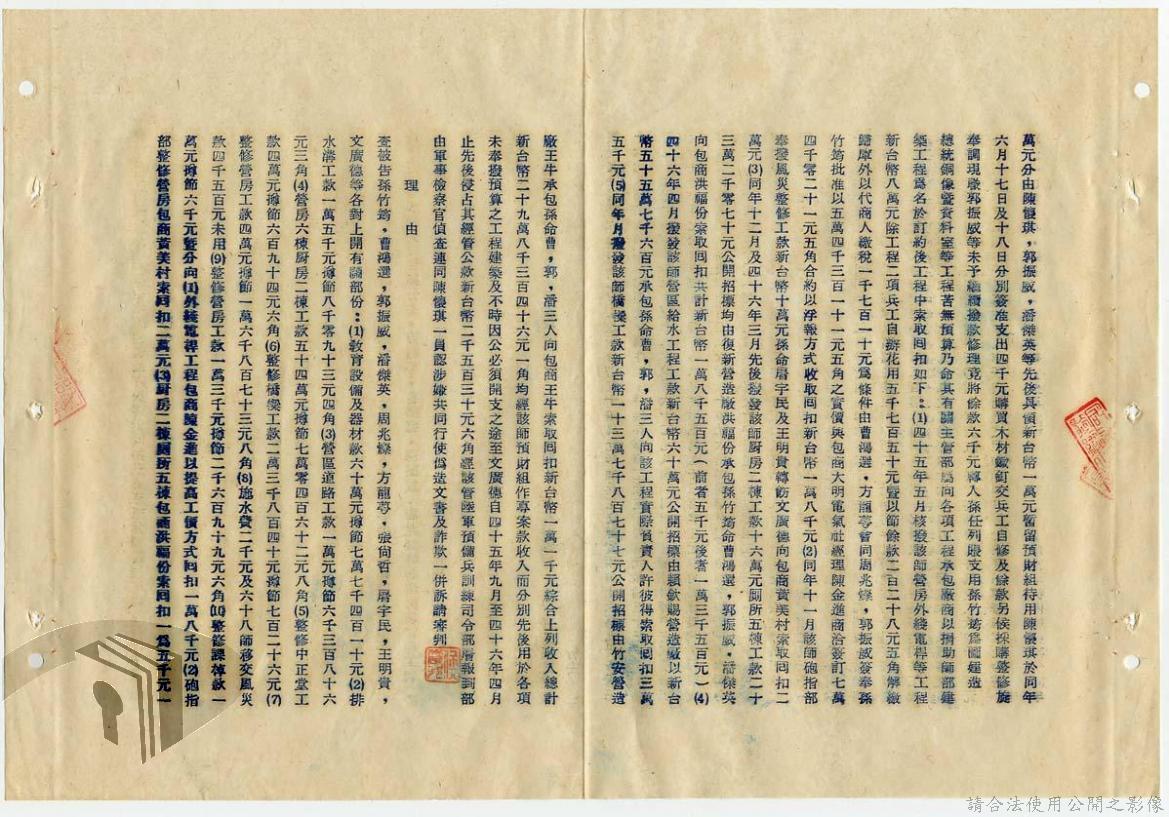 萬元分由陳懷琪，郭振威，潘傑英等先後具領新台幣一萬元暫留預財組待用陳懷琪於同年
六月十七日及十八日分別簽准支出四千元購買木材鐵釘交兵工自修及餘款另候採購整修旋
奉調現職郭振威等未予繼續撥款修理竟將餘款六千元轉入孫任列賬支用孫竹筠為圖建造
總統銅像暨資料室等工程苦無預算乃命其有關主管部屬向各項工程承包廠商以捐助師部建
築工程為名於訂約後工程中索取回扣如下：(1)四十五年五月核撥該師營房外綫電桿等工程
新台幣八萬元除工程二項兵工自辦花用五千七百五十元暨以節餘款二百二十八元五角解繳
歸庫外以代商人繳稅一千七百一十元為條件由曹鴻選，方龍夢會同周兆錄，郭振威簽奉孫
竹筠批准以五萬四千三百一十一元五角之實價與包商大明電氣社經理陳金進商洽簽訂七萬
四千零二十一元五角合約以浮報方式收取回扣新台幣一萬八千元(2)同年十一月該師砲指部
奉撥風災整修工款新台幣十萬元孫命屠宇民及王明貴轉飭文廣德向包商黃美村索取回扣二
萬元(3)同年十二月及四十六年三月先後撥發該師厨房二棟工款十六萬元厠所五棟工款二十
三萬二千零七十元公開招標均由復新營造廠洪福份承包孫竹筠命曹鴻選，郭振威，潘傑英
向包商洪福份索取回扣共計新台幣一萬八千五百元(前者五千元後者一萬三千五百元)(4)
四十六年四月撥發該師營區給水工程工款新台幣六十萬元公開招標由穎欽賜營造廠以新台
幣五十五萬七千六百元承包孫命曹，郭，潘三人向該工程實際負責人許彼得索取回扣三萬
五千元(5)同年月撥發該師橋樑工款新台幣一十三萬七千八百七十七元公開招標由竹安營造
廠王牛承包孫命曹，郭，潘三人向包商王牛索取回扣新台幣一萬一千元綜合上列收入總計
新台幣二十九萬八千三百四十六元一角均經該師預財組作專案款收入而分別先後用於各項
未奉撥預算之工程建築及不時因公必須開支之途至文廣德自四十五年九月至四十六年四月
止先後侵占其經管公款新台幣二千五百三十九元六角經該管陸軍預備兵訓練司令部層報到部
由軍事檢察官偵查連同陳懷琪一員認涉嫌共同行使偽造文書及詐欺一併訴請審判
理由
查被告孫竹筠，曹鴻選，郭振威，潘傑英，周兆錄，方龍夢，張尙哲，屠宇民，王明貴，
文廣德等各對上開有關部份：(1)敎育設備及器材款六十萬元撙節七萬七千四百一十元(2)排
水溝工款一萬五千元撙節八千零九十三元四角(3)營區道路工款一萬元撙節六千三百八十六
元三角(4)營房六棟厨房二棟工款五十四萬元撙節七萬零四百六十二元八角(5)整修中正堂工
款四萬元撙節六百九十四元六角(6)整修橋樑工款二萬三千八百四十元撙節七百二十六元(7)
整修營房工款四萬元撙節一萬六千八百七十三元八角(8)施水費二千元及六十八師移交風災
款四千五百元未用(9)整修營房工款一萬三千元撙節二千六百九十九元六角(10)整修課椅款一
萬元撙節六千元暨分向(1)外綫電桿工程包商陳金進以提高工價方式回扣一萬八千元(2)砲指
部整修營房包商黃美村索回扣二萬元(3)厨房二棟厠所五棟包商洪福份索回扣一為五千元一
請合法使用公開之影像